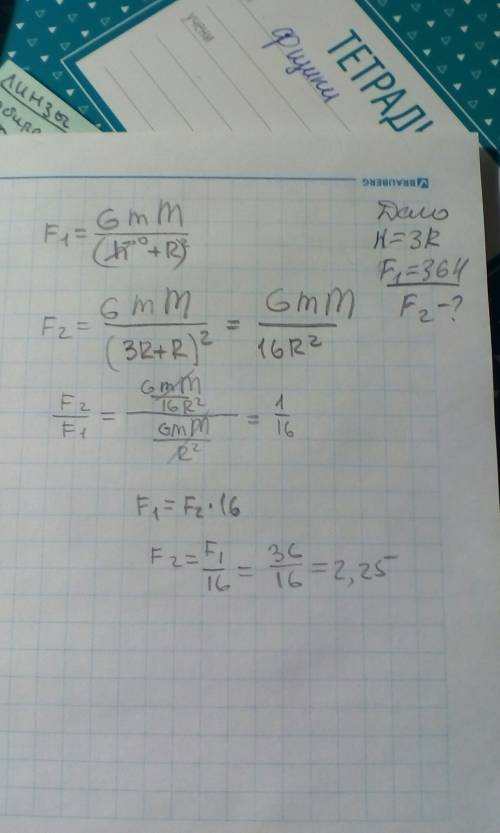 ТЕТРАДЬ
физики
учени
ЛИНЗЫ
BRAUBERG
Дано
H=3R
F₁=36H
F₂-?
F₁ = GmM/(h⁰+R)²
F₂ = GmM/(3R+R)² = GmM/16R²
F₂/F₁ = (GmM/16R²)/(GmM/R²) = 1/16
F₁ = F₂·16
F₂ = F₁/16 = 36/16 = 2,25